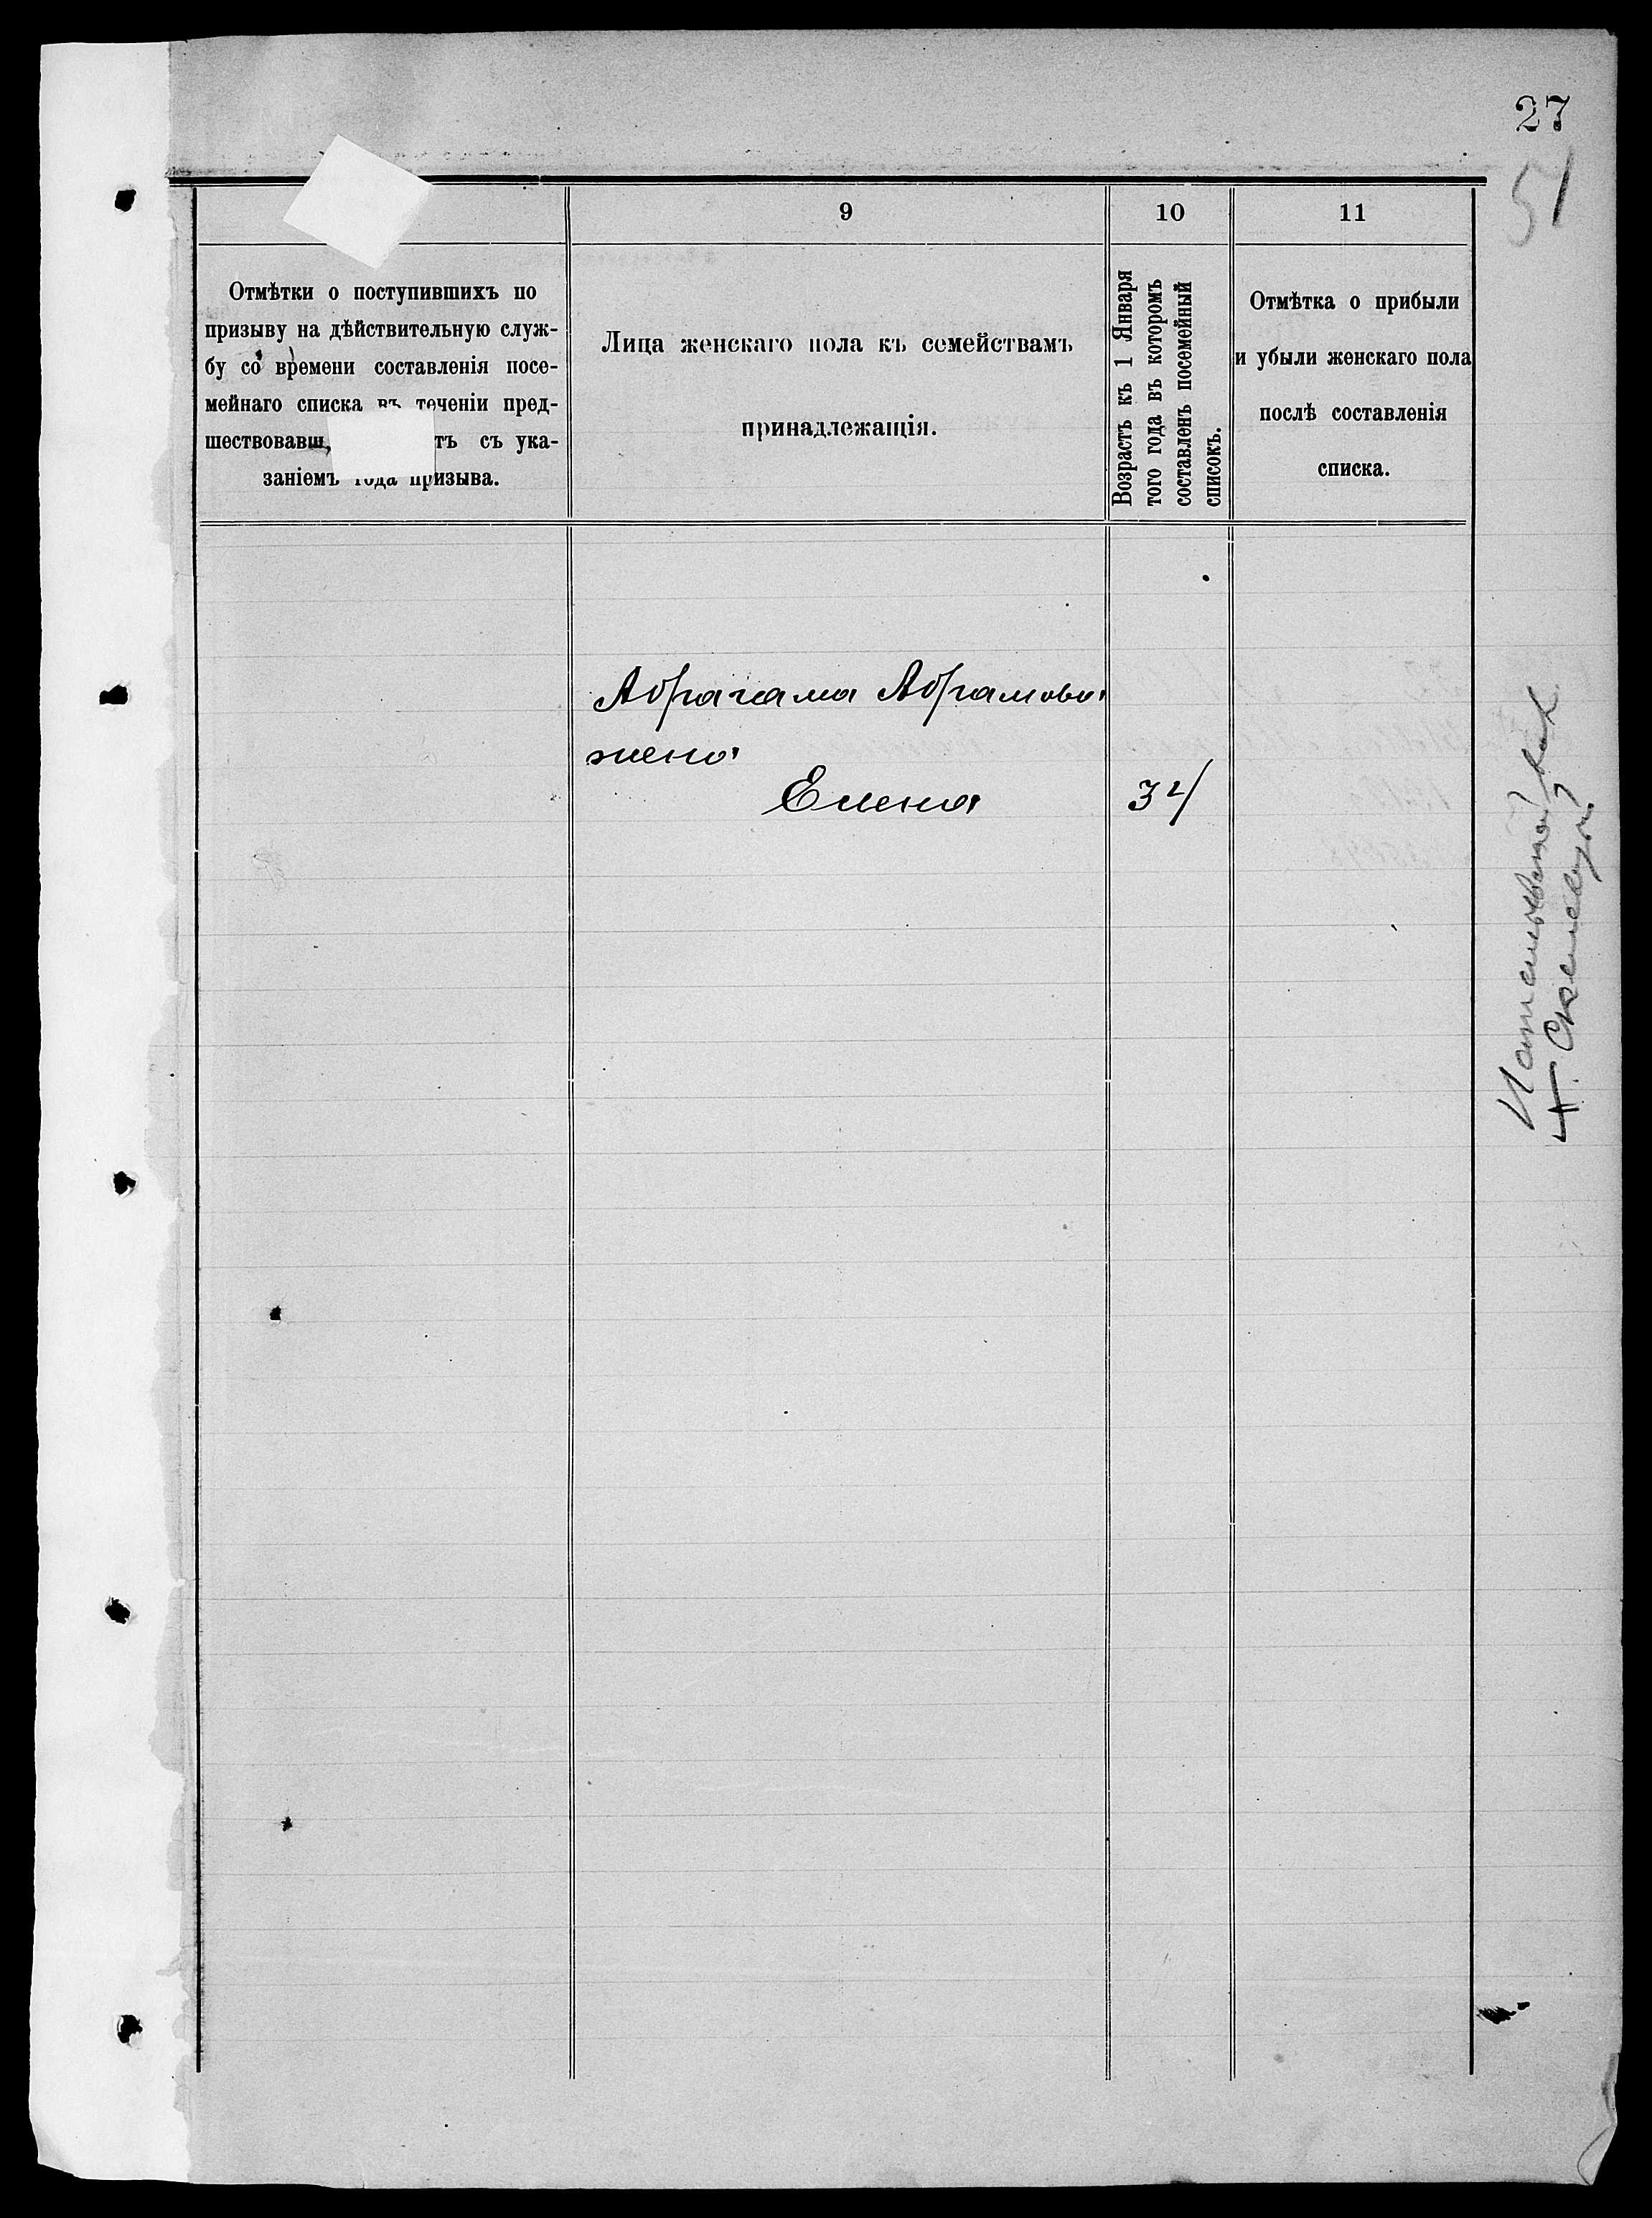 27
51
9
10
11
Отмѣтки о поступившихъ по
призыву на дѣйствительную служ-
бу со времени составленія посе-
мейнаго списка въ теченіи пред-
шествовавш тъ съ ука-
заніемъ года призыва.
Лица женскаго пола къ семействамъ
принадлежащія.
Возрастъ къ 1 Января
того года въ которомъ
составленъ посемейный
списокъ.
Отмѣтка о прибыли
и убыли женскаго пола
послѣ составленія
списка.
Абрагама Абрамова
жена
Елена 34